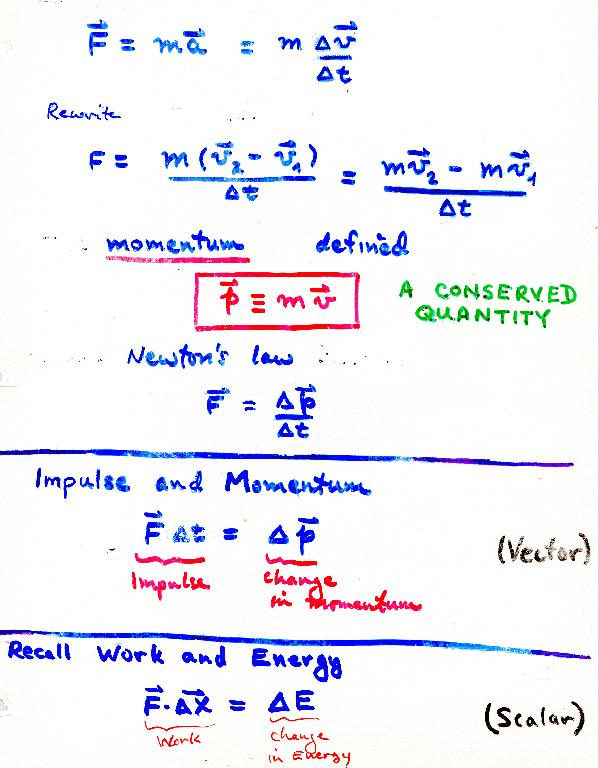 F⃗ = ma⃗ = m Δv⃗/Δt
Rewrite
F = m(v⃗₂ - v⃗₁)/Δt = (mv⃗₂ - mv⃗₁)/Δt
momentum defined
p⃗ ≡ mv⃗
A CONSERVED
QUANTITY
Newton's law
F⃗ = Δp⃗/Δt
Impulse and Momentum
F⃗ Δt = Δp⃗
(Vector)
Impulse change
in momentum
Recall Work and Energy
F⃗·Δx⃗ = ΔE
(Scalar)
Work change
in Energy